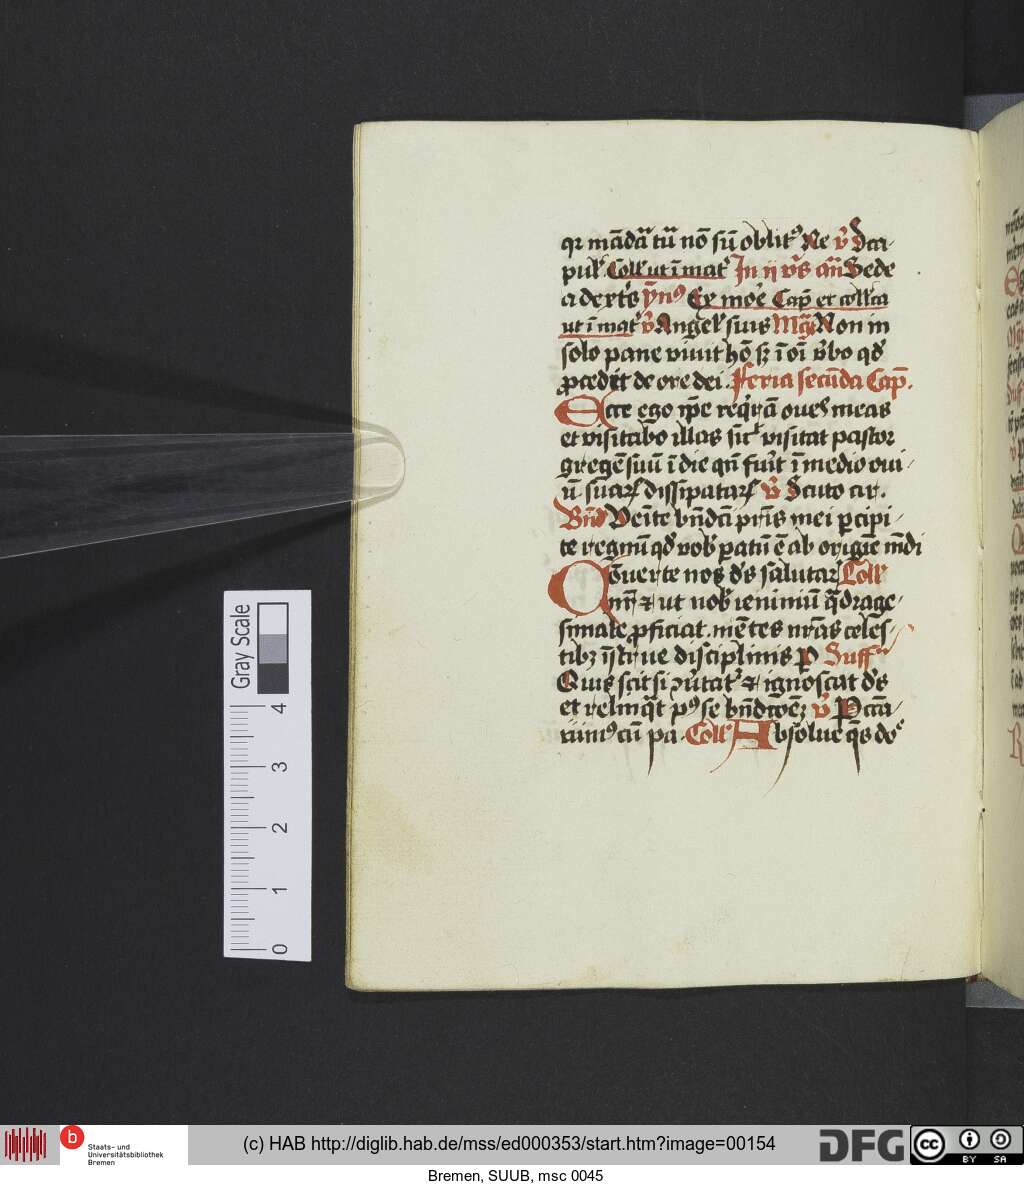 qr mādata tū nō sū oblitꝰ Re v̄ Sca-
pulꝭ Collꝭ ut ī matꝭ In ij vꝰs añ Sede
a dextꝭs ẏmꝰ Ex moꝭe Cap̄ et collꝭca
ut ī matꝭ v̄ Angelꝭ suis Non in
solo pane vivit hō sꝫ ī oī v̄bo qd̄
ꝓcedit de ore dei. Feria secūda Cap̄.
Ecce ego ip̄e reqͥrā oues meas
et visitabo illas sic̄ visitat pastor
gregē suū ī die qn̄ fuīt ī medio oui-
ū suarꝝ dissipatarꝝ v̄ Scuto cir.
Bn̄d Veīte bn̄dc̄i pr̄is mei ꝑcipi-
te regnū qd̄ vobꝭ ꝑatū ē ab origīe mūdi
Cōuerte nos dꝰs salutarꝭ Collꝭ
nr̄ ⁊ ut nobꝭ ieiuniū qͣdrage-
simale ꝓficiat. mētes nr̄as celes-
tibꝫ īstrue disciplinis P Suffr
Quis scit si ꝯūtatꝭ ⁊ ignoscat dꝰs
et relinqͣt pꝰ se bn̄dcōeꝫ v̄ Pecca
uimꝰ cū pa. Collꝭ Absolue q̄s dn̄e
Gray Scale
4
3
2
1
0
b
Staats- und
Universitätsbibliothek
Bremen
(c) HAB http://diglib.hab.de/mss/ed000353/start.htm?image=00154
DFG
cc
BY SA
Bremen, SUUB, msc 0045